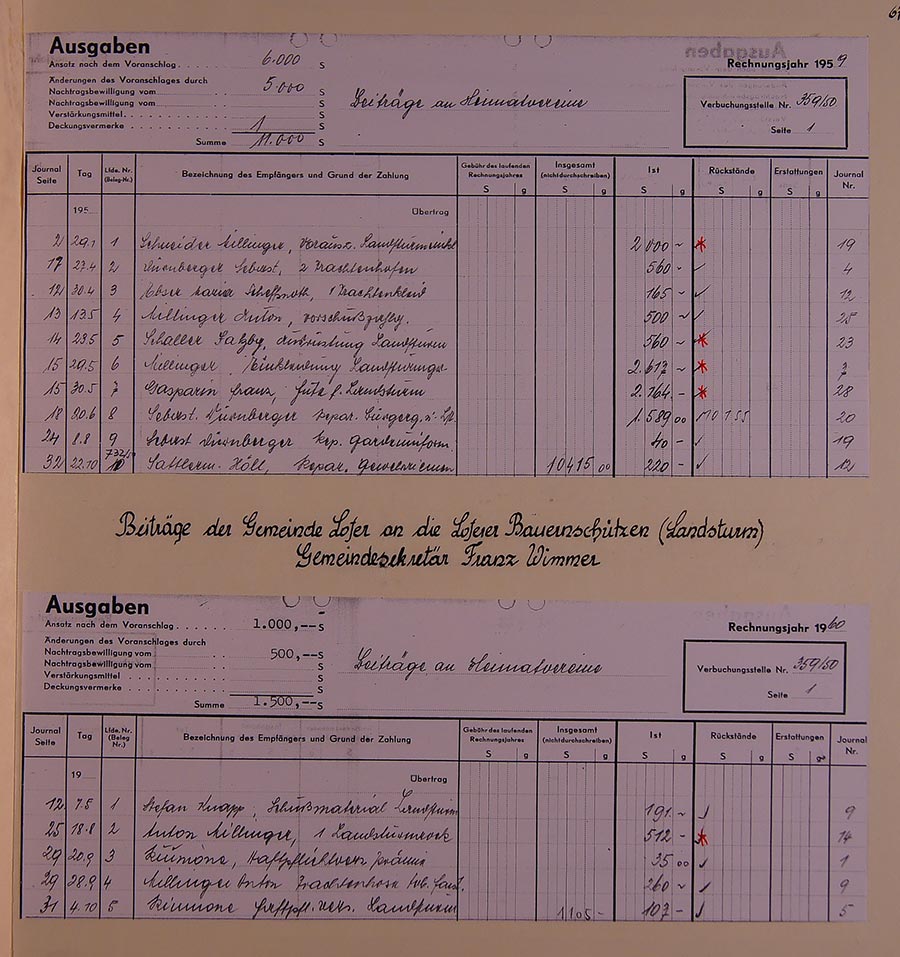 Ausgaben
Ansatz nach dem Voranschlag 6.000 S
Rechnungsjahr 1959
Änderungen des Voranschlages durch
Nachtragsbewilligung vom 5.000 S
Nachtragsbewilligung vom S
Verstärkungsmittel S
Deckungsvermerke S
Summe 11.000 S
Beiträge an Heimatvereine
Verbuchungsstelle Nr. 359/50
Seite 1
Journal Seite Tag Lfde. Nr. (Beleg-Nr.) Bezeichnung des Empfängers und Grund der Zahlung Gebühr des laufenden Rechnungsjahres Insgesamt (nicht durchschreiben) Ist Rückstände Erstattungen Journal Nr.
S g S g S g S g S g
195 Übertrag
2 29.1 1 Schneider Millinger, 2000 19
17 27.4 2 Dürnberger Sebast, 2 Trachtenhosen 560 - 4
12 30.4 3 Scheffsnoth, 1 Trachtenkleid 165 12
13 13.5 4 Millinger Anton, 500 25
14 23.5 5 Schaller Salzbg, Ausrüstung Landsturm 560 - 23
15 29.5 6 Millinger, Einkleidung 2.617 7
15 30.5 7 Gasparin Franz, Hüte f. Landsturm 2.164 - 28
18 20.6 8 Sebast. Dürnberger Repar. 1.589 00 20
24 8.8 9 Sebast Dürnberger Rep. Gardeuniform 40 - 19
32 22.10 10 Sattlerm. Höll, Repar. Gewehrriemen 10415 00 220 - 12
Beiträge der Gemeinde Lofer an die Loferer Bauernschützen (Landsturm)
Gemeindesekretär Franz Wimmer
Ausgaben
Ansatz nach dem Voranschlag 1.000,--S
Rechnungsjahr 1960
Änderungen des Voranschlages durch
Nachtragsbewilligung vom 500,--S
Nachtragsbewilligung vom S
Verstärkungsmittel S
Deckungsvermerke S
Summe 1.500,--S
Beiträge an Heimatvereine
Verbuchungsstelle Nr. 359/50
Seite 1
Journal Seite Tag Lfde. Nr. (Beleg Nr.) Bezeichnung des Empfängers und Grund der Zahlung Gebühr des laufenden Rechnungsjahres Insgesamt (nicht durchschreiben) Ist Rückstände Erstattungen Journal Nr.
S g S g S g S g S g
19 Übertrag
12 7.5 1 Stefan Knapp, Schußmaterial Landsturm 191 9
25 18.8 2 Anton Millinger, 1 Landsturmrock 512 - 14
29 20.9 3 Haftpflichtvers prämie 35 00 1
29 28.9 4 Millinger Anton Trachtenhose 260 9
31 4.10 5 Haftpfl. Vers. Landsturm 1105- 107 - 5